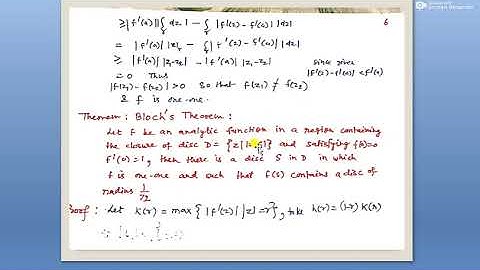 ≥ |f'(a)| |∫ dz| - ∫ |f'(z) - f'(a)| |dz|
6
= |f'(a)| |z| - ∫ |f'(z) - f'(a)| |dz|
≥ |f'(a)| |z₁-z₂| - |f'(a)| |z₁-z₂|
since given
|f'(z) - f'(a)| < f'(a)
= 0 Thus
|f(z₁) - f(z₂)| > 0 so that f(z₁) ≠ f(z₂)
& f is one-one.
Theorem: Bloch's Theorem:
Let f be an analytic function in a region containing
the closure of disc D = {z| } and satisfying f(0)=0
f'(0)=1, then there is a disc S in D in which
f is one-one and such that f(s) contains a disc of
radius 1/72
Proof: Let K(r) = max { |f'(z)| |z|=r}, take h(r)=(1-r) K(r)